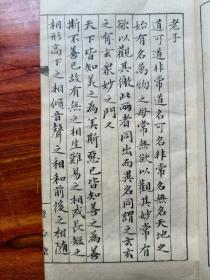 老子
道可道非常道名可名非常名無名天地之
始有名萬物之母常無欲以觀其妙常有
欲以觀其徼此兩者同出而異名同謂之玄玄
之有玄眾妙之門又
天下皆知美之為美斯惡已皆知善之為善
斯不善已故有無之相生難易之相成長短之
相形高下之相傾音聲之相和前後之相隨